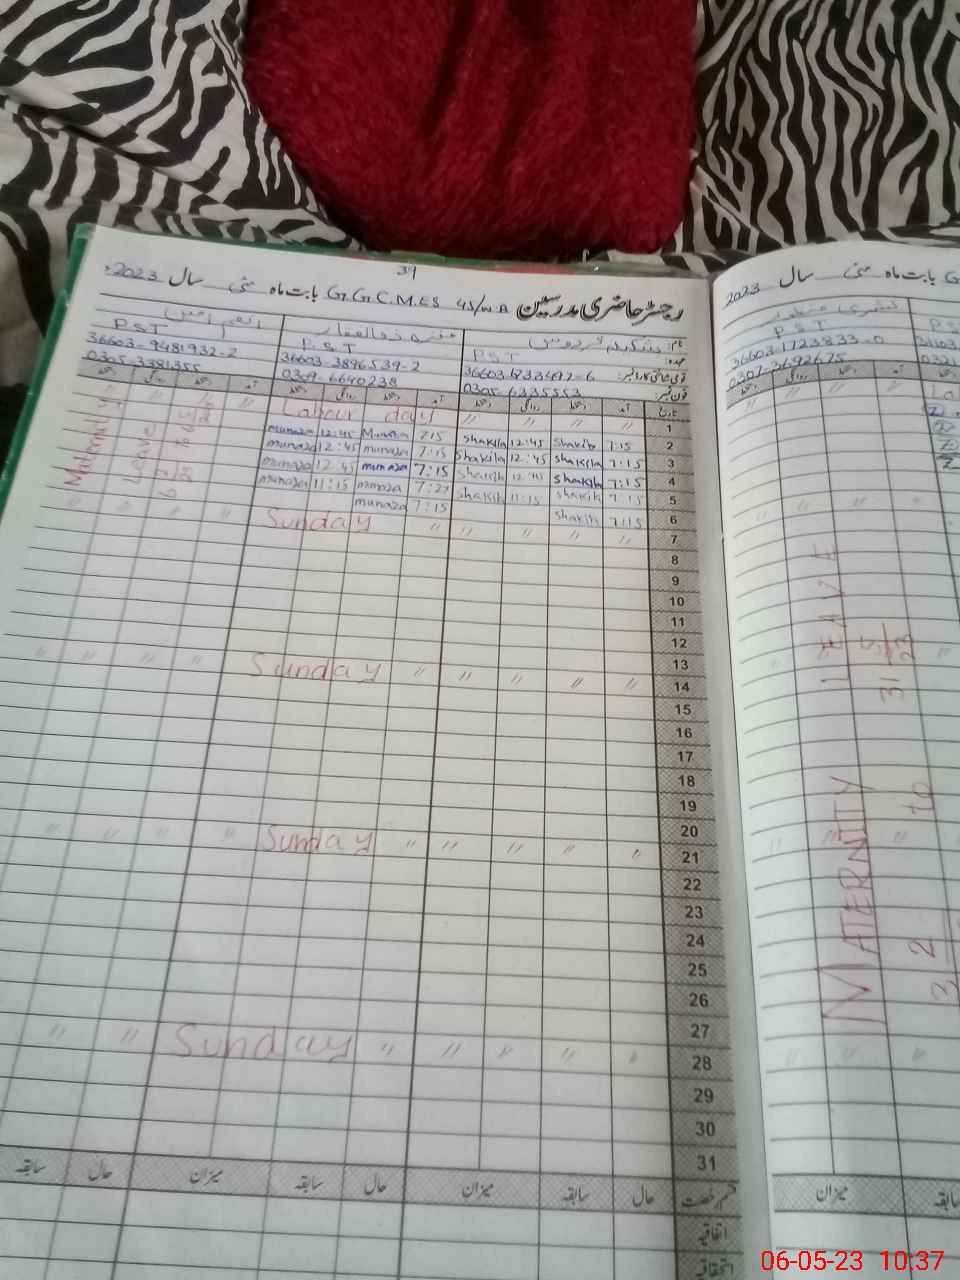 39
رجسٹر حاضری مدرسین G.G.C.M.ES 45/W.B بابت ماہ مئی سال 2023ء
نام: شکیلہ فردوس منزہ ذوالفقار انعم امین
عہدہ: P.S.T P.S.T P.S.T
قومی شناختی کارڈ نمبر: 36603-3896539-2 36603-9481932-2
فون نمبر: 0305-6335553 0309-6640238 0305-3381355
تاریخ آمد دستخط روانگی دستخط آمد دستخط روانگی دستخط آمد دستخط روانگی دستخط
1 〃 〃 〃 〃 Labour day 〃 〃
2 7:15 Shakila 12:45 Shakila 7:15 Munaza 12:45 munaza
3 7:15 Shakila 12:45 Shakila 7:15 munaza 12:45 munaza
4 7:15 Shakila 12:45 Shakila 7:15 munaza 12:45 munaza
5 7:15 Shakila 11:15 Shakila 7:27 munaza 11:15 munaza
6 7:15 Shakila 7:15 munaza
7 〃 〃 〃 〃 〃 Sunday 〃 〃 〃
8
9
10
11
12
13
14 〃 〃 〃 〃 〃 Sunday 〃 〃 〃 〃
15
16
17
18
19
20
21 〃 〃 〃 〃 〃 Sunday 〃 〃 〃 〃
22
23
24
25
26
27
28 〃 〃 〃 〃 〃 Sunday 〃 〃
29
30
31
Maternity
Leave
قسم رخصت حال سابقہ میزان حال سابقہ میزان حال سابقہ
اتفاقیہ
استحقاقیہ
بابت ماہ مئی سال 2023
P.S.T
36603-1723833-0
0307-3692675
MATERNITY LEAVE
to 31 5 23
میزان سابقہ
06-05-23 10:37